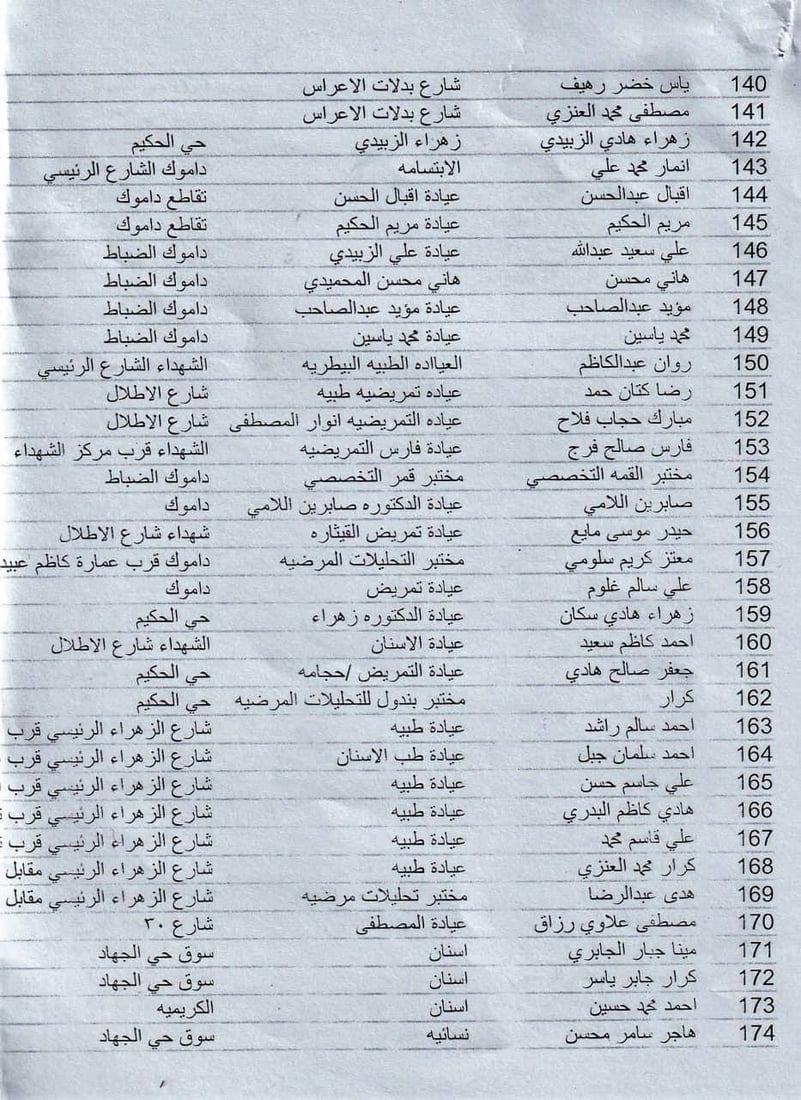 140 ياس خضر رهيف شارع بدلات الاعراس
141 مصطفى محمد العنزي شارع بدلات الاعراس
142 زهراء هادي الزبيدي زهراء الزبيدي حي الحكيم
143 انمار محمد علي الابتسامه داموك الشارع الرئيسي
144 اقبال عبدالحسن عيادة اقبال الحسن تقاطع داموك
145 مريم الحكيم عيادة مريم الحكيم تقاطع داموك
146 علي سعيد عبدالله عيادة علي الزبيدي داموك الضباط
147 هاني محسن هاني محسن المحميدي داموك الضباط
148 مؤيد عبدالصاحب عيادة مؤيد عبدالصاحب داموك الضباط
149 محمد ياسين عيادة محمد ياسين داموك الضباط
150 روان عبدالكاظم العيااده الطبيه البيطريه الشهداء الشارع الرئيسي
151 رضا كتان حمد عياده تمريضيه طبيه شارع الاطلال
152 مبارك حجاب فلاح عياده التمريضيه انوار المصطفى شارع الاطلال
153 فارس صالح فرج عيادة فارس التمريضيه الشهداء قرب مركز الشهداء
154 مختبر القمه التخصصي مختبر قمر التخصصي داموك الضباط
155 صابرين اللامي عيادة الدكتوره صابرين اللامي داموك
156 حيدر موسى مايع عيادة تمريض القيثاره شهداء شارع الاطلال
157 معتز كريم سلومي مختبر التحليلات المرضيه داموك قرب عمارة كاظم عبيد
158 علي سالم غلوم عيادة تمريض داموك
159 زهراء هادي سكان عيادة الدكتوره زهراء حي الحكيم
160 احمد كاظم سعيد عيادة الاسنان الشهداء شارع الاطلال
161 جعفر صالح هادي عيادة التمريض /حجامه حي الحكيم
162 كرار مختبر بندول للتحليلات المرضيه حي الحكيم
163 احمد سالم راشد عيادة طبيه شارع الزهراء الرئيسي قرب
164 احمد سلمان جبل عيادة طب الاسنان شارع الزهراء الرئيسي قرب
165 علي جاسم حسن عيادة طبيه شارع الزهراء الرئيسي قرب
166 هادي كاظم البدري عيادة طبيه شارع الزهراء الرئيسي قرب
167 علي قاسم محمد عيادة طبيه شارع الزهراء الرئيسي قرب
168 كرار محمد العنزي عيادة طبيه شارع الزهراء الرئيسي مقابل
169 هدى عبدالرضا مختبر تحليلات مرضيه شارع الزهراء الرئيسي مقابل
170 مصطفى علاوي رزاق عيادة المصطفى شارع ٣٠
171 مينا جبار الجابري اسنان سوق حي الجهاد
172 كرار جابر ياسر اسنان سوق حي الجهاد
173 احمد محمد حسين اسنان الكريميه
174 هاجر سامر محسن نسائيه سوق حي الجهاد